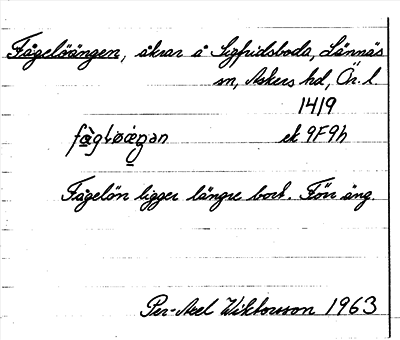 Fågelöängen, åkrar å Sigfridsboda, Lännäs
sn, Askers hd, Ör. l
1419
ek 9F9h
Fågelön ligger längre bort. Förr äng.
Per-Axel Wiktorsson 1963